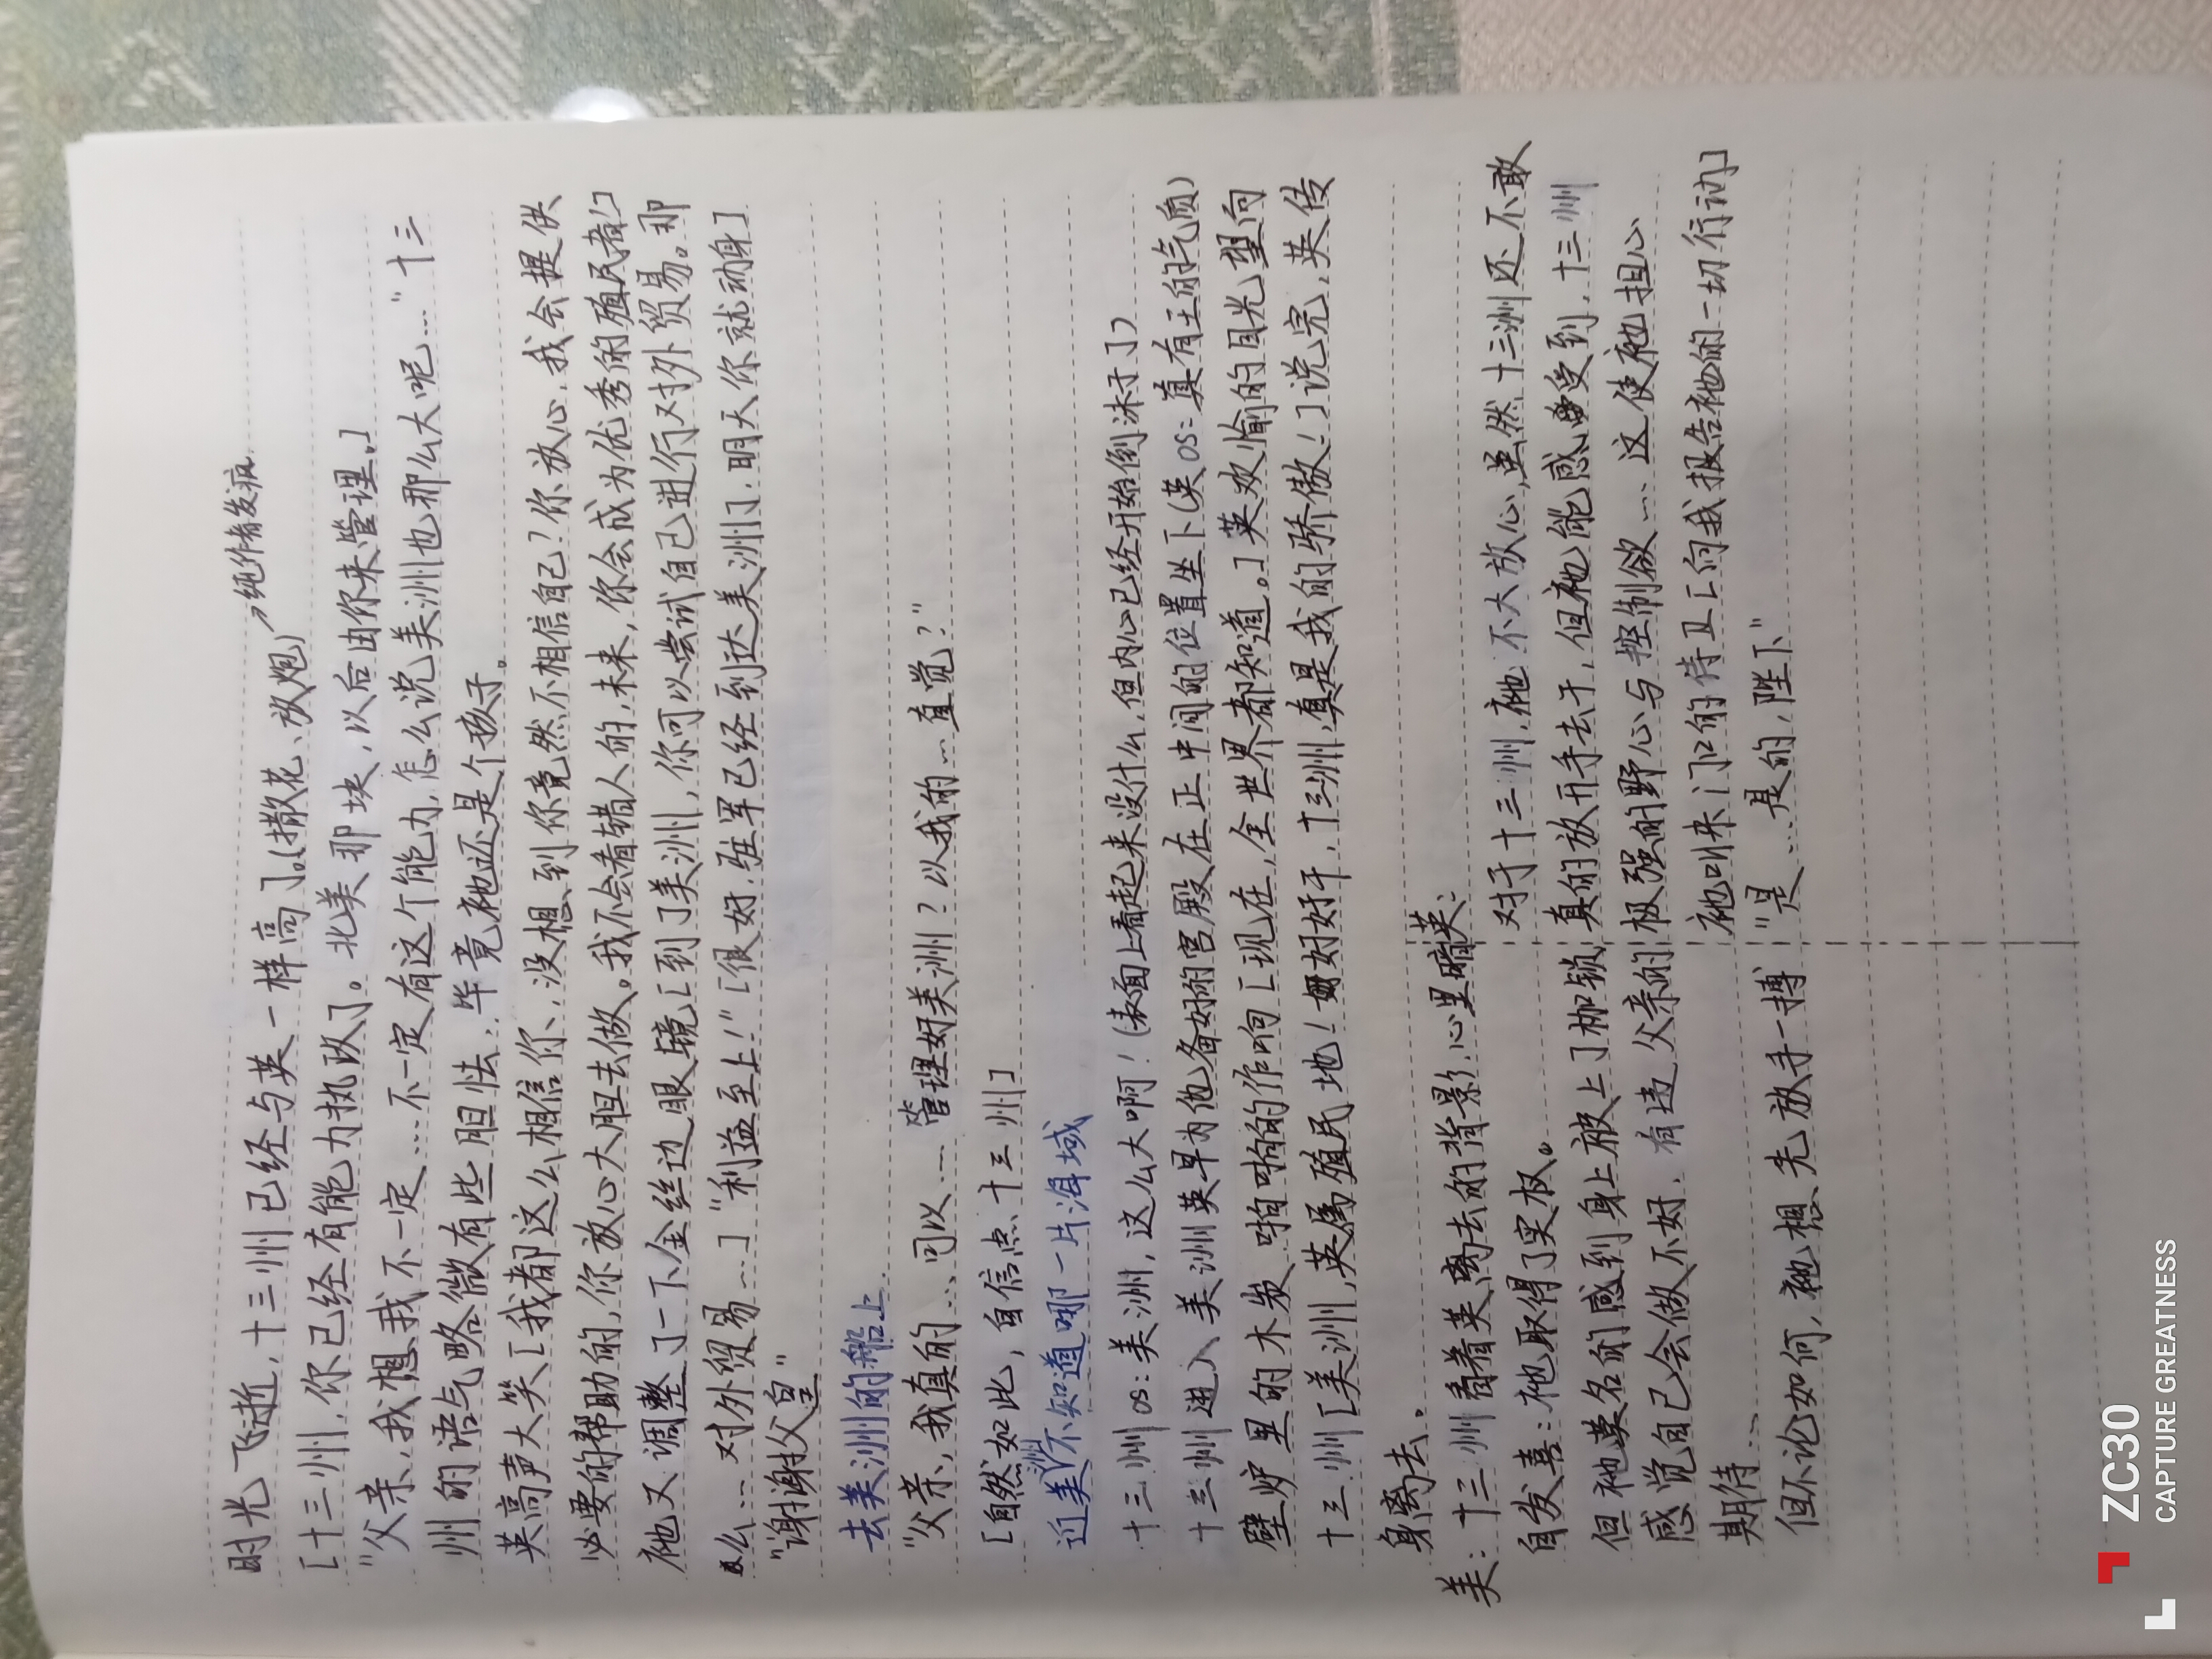 时光飞逝,十三州已经与英一样高了。(撒花、放炮)→纯作者发疯
[十三州,你已经有能力执政了。北美那块,以后由你来管理。]
"父亲,我想我不一定……不一定有这个能力,怎么说美洲也那么大呢…"十三
州的语气略微有些胆怯,毕竟祂还是个孩子。
英高声大笑[我都这么相信你、没想到你竟然不相信自己?你放心,我会提供
必要的帮助的,你放心大胆去做。我不会看错人的,未来,你会成为优秀的殖民者]
祂又调整了一下金丝边眼镜[到了美洲,你可以尝试自己进行对外贸易。那
么…对外贸易…]"利益至上!"[很好,驻军已经到达美洲了.明天你就动身]
"谢谢父皇"
去美洲的船上
"父亲,我真的…可以…管理好美洲?以我的…直觉?"
[自然如此,自信点十三州]
近美洲不知道哪一片海域
十三州os:美洲,这么大啊!(表面上看起来没什么,但内心已经开始倒沫子了)
十三州进入美洲英早为他备好的宫殿,在正中间的位置坐下(英os:真有王的气质)
壁炉里的木炭啪啪的作响[现在,全世界都知道。]英欢愉的目光望向
十三州[美洲,英属殖民地!好好干,十三州,真是我的骄傲!]说完,英传
身离去。
美:十三州看着英离去的背影,心里暗
自发喜:祂取得了实权。
但祂莫名的感到身上被上了枷锁
感觉自己会做不好.有违父亲的
期待…
但不论如何,祂想先放手一搏
英:
对于十三州,祂不大放心,虽然十三州还不敢
真的放开手去干,但祂能感受到,十三州
极强的野心与控制欲…这使祂担心
祂叫来门口的侍卫[向我报告祂的一切行动]
"是…是的,陛下"
ZC30
CAPTURE GREATNESS